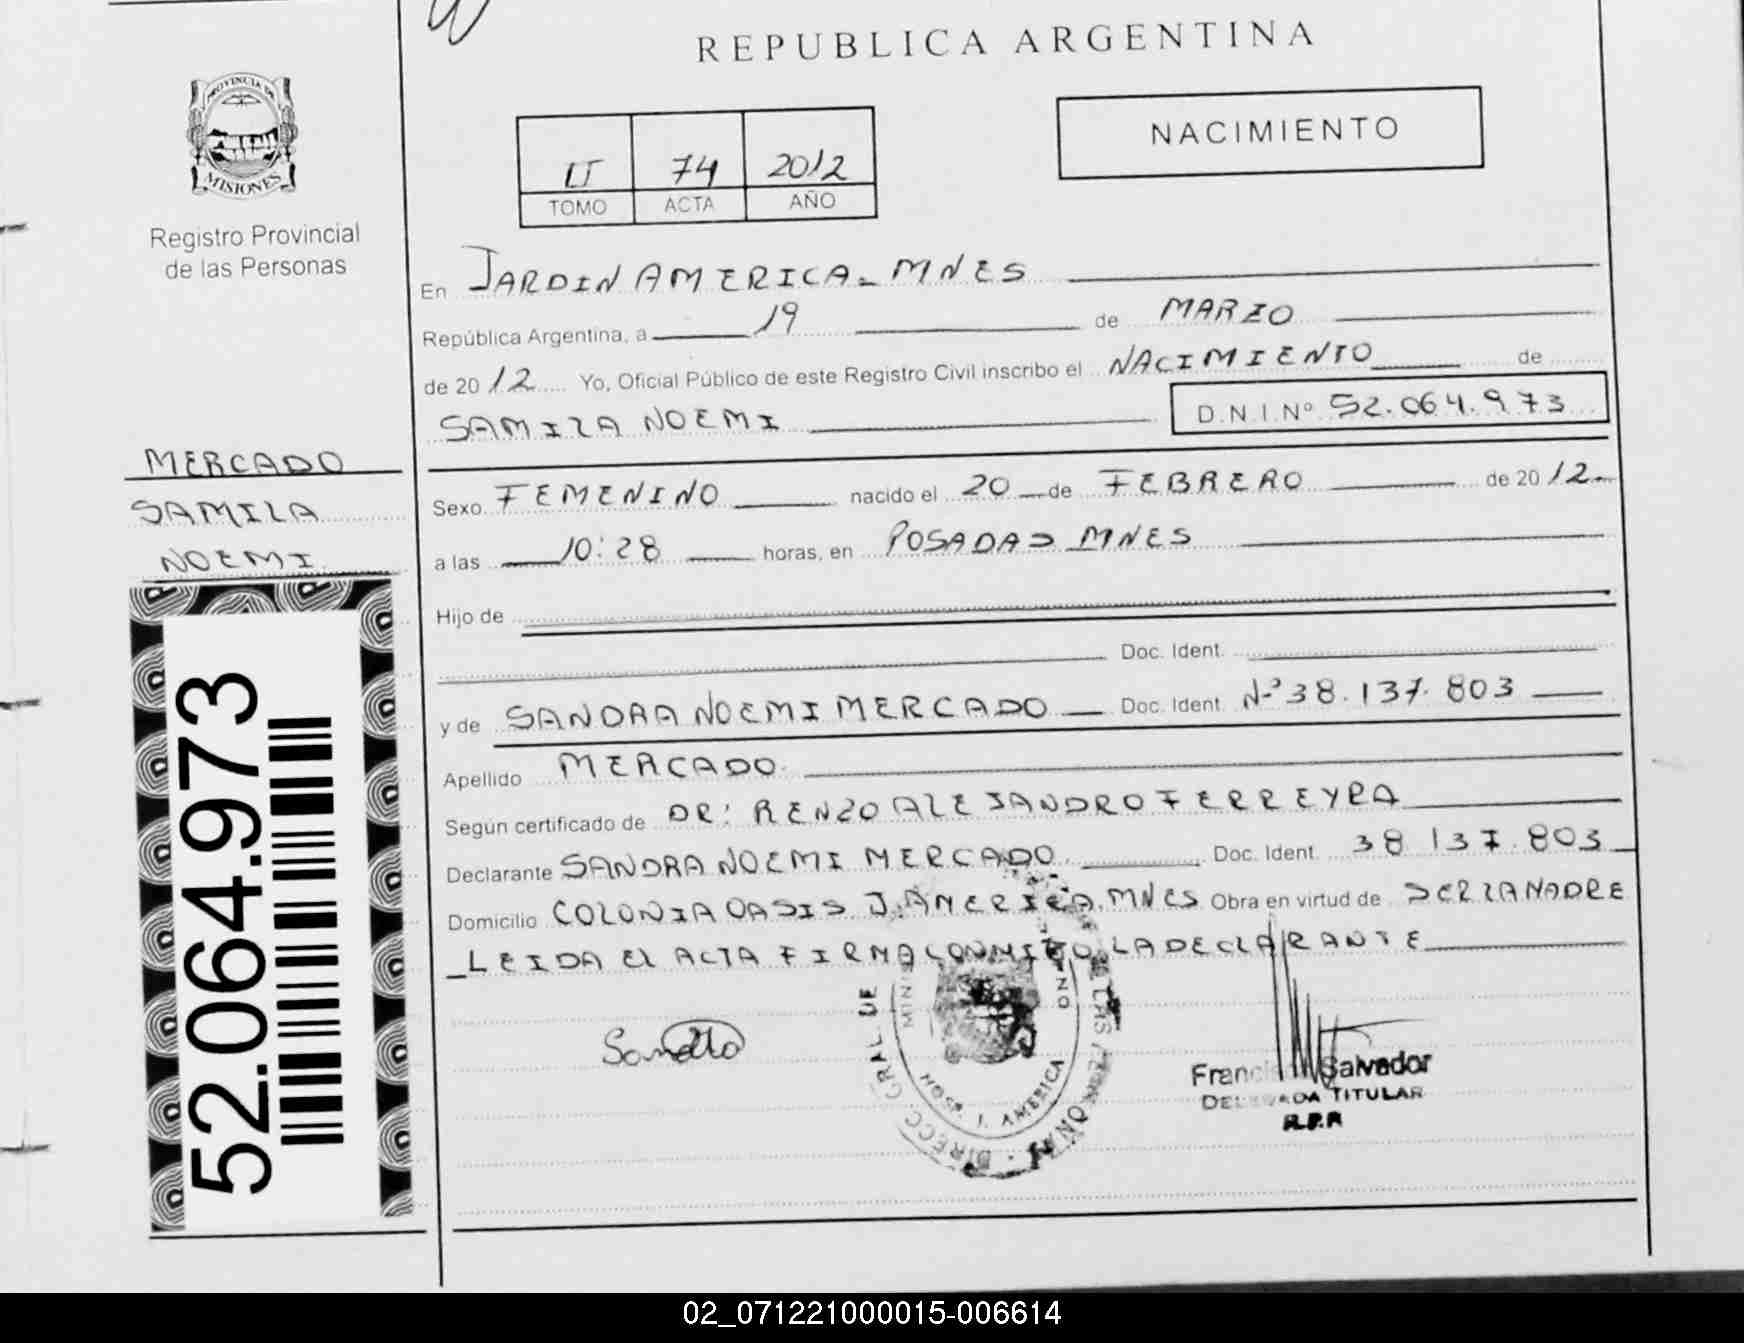 REPUBLICA ARGENTINA
PROVINCIA DE
MISIONES
Registro Provincial
de las Personas
NACIMIENTO
74 2012
TOMO ACTA AÑO
En JARDIN AMERICA - MNES
República Argentina, a 19 de MARZO
de 2012 Yo, Oficial Público de este Registro Civil inscribo el NACIMIENTO de
SAMILA NOEMI D.N.I. Nº 52.064.973
MERCADO
SAMILA
NOEMI
52.064.973
Sexo FEMENINO nacido el 20 de FEBRERO de 2012
a las 10:28 horas, en POSADAS MNES
Hijo de
Doc. Ident.
y de SANDRA NOEMI MERCADO Doc. Ident. Nº 38.137.803
Apellido MERCADO
Según certificado de DR: RENZO ALEJANDRO FERREYRA
Declarante SANDRA NOEMI MERCADO Doc. Ident. 38 137.803
Domicilio COLONIA OASIS J. AMERICA. MNES Obra en virtud de SER LA MADRE
LEIDA EL ACTA FIRMA CONMIGO LA DECLARANTE
DIRECC GRAL DE LAS
J. AMERICA
Salvador
TITULAR
R.P.P
02_071221000015-006614